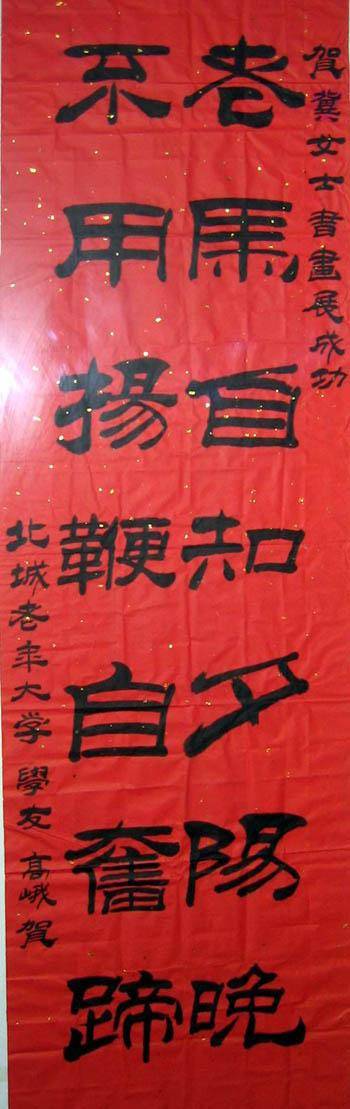 賀冀女士書畫展成功
老馬自知夕陽晚
不用揚鞭自奮蹄
北城老年大学學友高峨賀